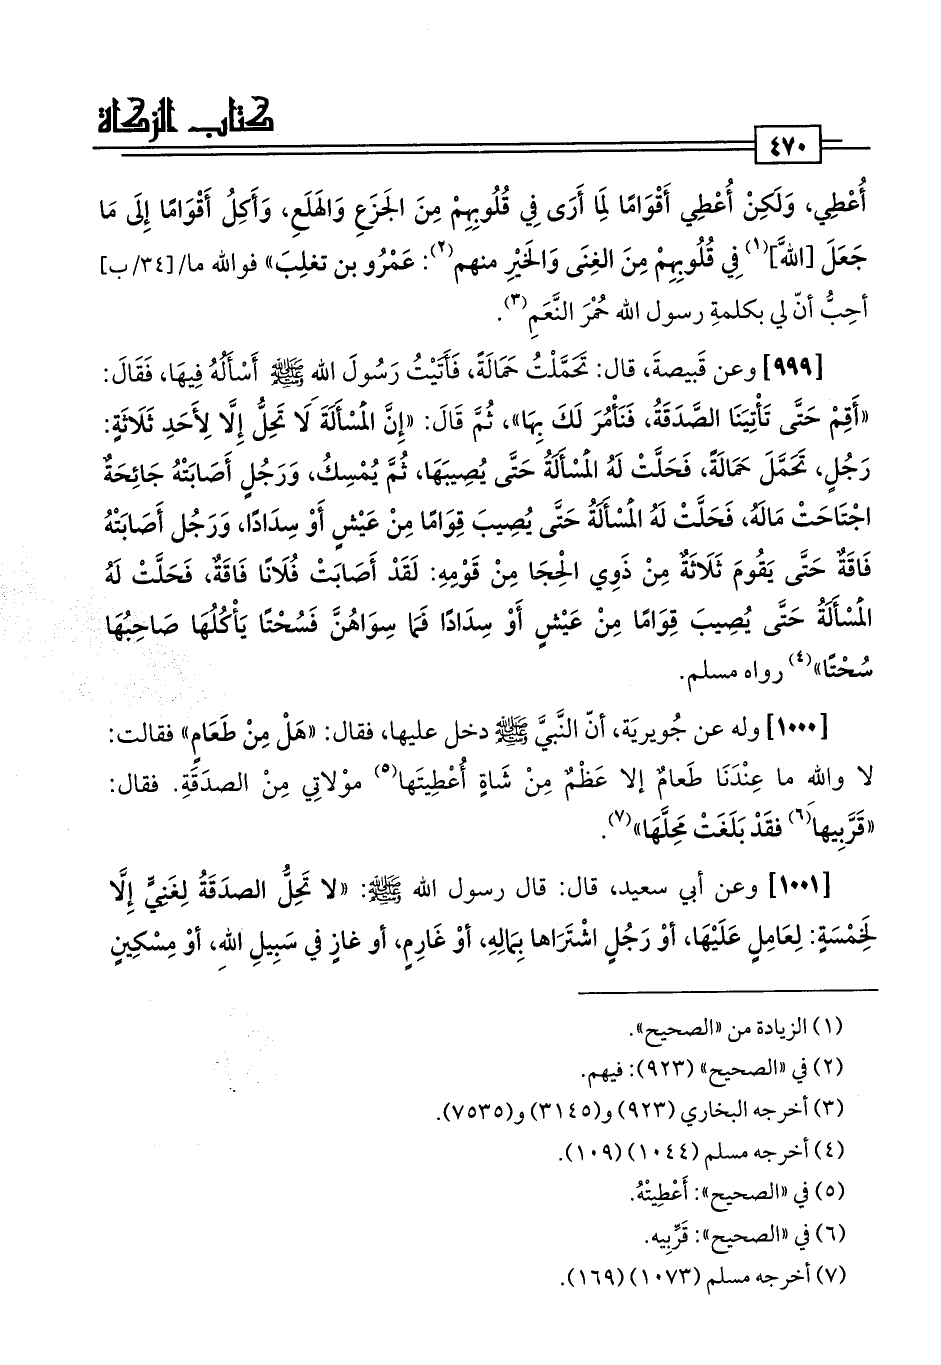 كتاب الزكاة
٤٧٠
أُعْطِي، وَلَكِنْ أُعْطِي أَقْوَامًا لِمَا أَرَى فِي قُلُوبِهِمْ مِنَ الجَزَعِ وَالهَلَعِ، وَأَكِلُ أَقْوَامًا إِلَى مَا
جَعَلَ [اللهُ](١) فِي قُلُوبِهِمْ مِنَ الغِنَى وَالخَيْرِ منهم(٢): عَمْرُو بن تغلِبَ» فوالله ما/[٣٤/ب]
أحِبُّ أنّ لي بكلمةِ رسول الله حُمْرَ النَّعَمِ(٣).
[٩٩٩] وعن قَبيصةَ، قال: تَحَمَّلْتُ حَمَالَةً، فَأَتَيْتُ رَسُولَ الله ﷺ أَسْأَلُهُ فِيهَا، فَقَالَ:
«أَقِمْ حَتَّى تَأْتِيَنَا الصَّدَقَةُ، فَنَأْمُرَ لَكَ بِهَا»، ثُمَّ قَالَ: «إِنَّ المَسْأَلَةَ لَا تَحِلُّ إِلَّا لِأَحَدِ ثَلَاثَةٍ:
رَجُلٍ، تَحَمَّلَ حَمَالَةً، فَحَلَّتْ لَهُ المَسْأَلَةُ حَتَّى يُصِيبَهَا، ثُمَّ يُمْسِكُ، وَرَجُلٍ أَصَابَتْهُ جَائِحَةٌ
اجْتَاحَتْ مَالَهُ، فَحَلَّتْ لَهُ المَسْأَلَةُ حَتَّى يُصِيبَ قِوَامًا مِنْ عَيْشٍ أَوْ سِدَادًا، وَرَجُل أَصَابَتْهُ
فَاقَةٌ حَتَّى يَقُومَ ثَلَاثَةٌ مِنْ ذَوِي الحِجَا مِنْ قَوْمِهِ: لَقَدْ أَصَابَتْ فُلَانًا فَاقَةٌ، فَحَلَّتْ لَهُ
المَسْأَلَةُ حَتَّى يُصِيبَ قِوَامًا مِنْ عَيْشٍ أَوْ سِدَادًا فَمَا سِوَاهُنَّ فَسُحْتًا يَأْكُلُهَا صَاحِبُهَا
سُحْتًا»(٤) رواه مسلم.
[١٠٠٠] وله عن جُويريَة، أنّ النَّبيَّ ﷺ دخل عليها، فقال: «هَلْ مِنْ طَعَامٍ» فقالت:
لا والله ما عِنْدَنَا طَعامٌ إلا عَظْمٌ مِنْ شَاةٍ أُعْطِيتَها(٥) موْلاتِي مِنْ الصدَقَةِ. فقال:
«قَرَّبِيها(٦) فقَدْ بَلَغَتْ مَحِلَّهَا»(٧).
[١٠٠١] وعن أبي سعيد، قال: قال رسول الله ﷺ: «لا تَحِلُّ الصدَقَةُ لِغَنِيٍّ إِلَّا
لِخَمْسَةٍ: لِعَامِلٍ عَلَيْهَا، أوْ رَجُلٍ اشْتَرَاها بِمَالِهِ، أوْ غَارِمٍ، أو غازٍ في سَبِيلِ اللهِ، أوْ مِسْكِينٍ
(١) الزيادة من «الصحيح».
(٢) في «الصحيح» (٩٢٣): فيهم.
(٣) أخرجه البخاري (٩٢٣) و(٣١٤٥) و(٧٥٣٥).
(٤) أخرجه مسلم (١٠٤٤) (١٠٩).
(٥) في «الصحيح»: أُعْطِيَتْهُ.
(٦) في «الصحيح»: قَرِّبِيه.
(٧) أخرجه مسلم (١٠٧٣) (١٦٩).